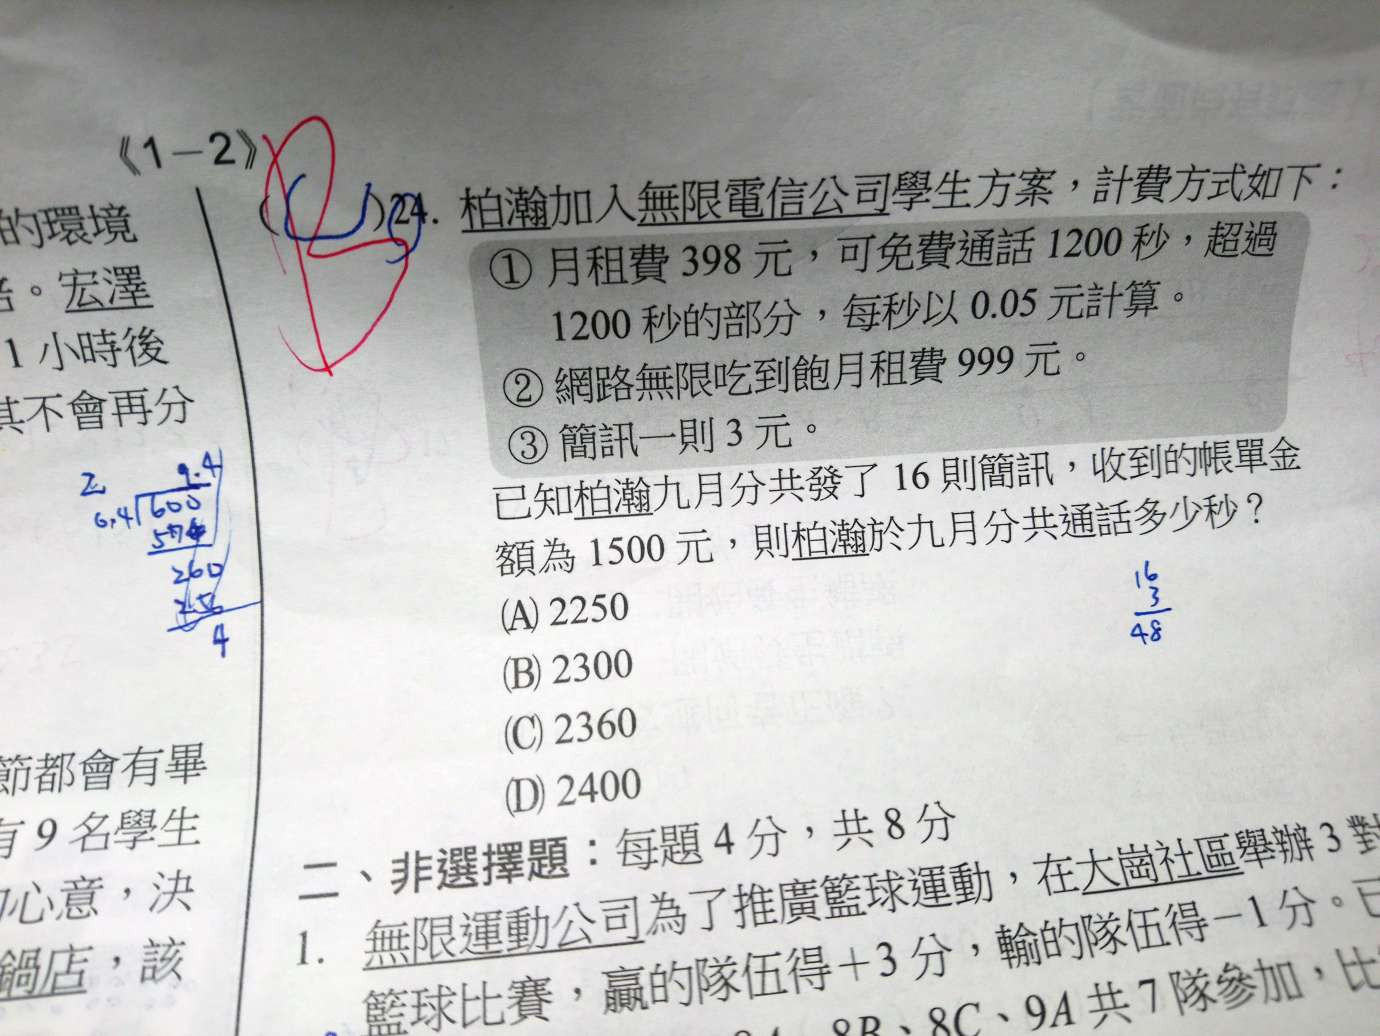 《1－2》
的環境
。宏澤
1 小時後
其不會再分
2. 9.4
6.4 600
576
260
256
4
節都會有畢
有 9 名學生
心意，決
鍋店，該
( )24. 柏瀚加入無限電信公司學生方案，計費方式如下：
① 月租費 398 元，可免費通話 1200 秒，超過
1200 秒的部分，每秒以 0.05 元計算。
② 網路無限吃到飽月租費 999 元。
③ 簡訊一則 3 元。
已知柏瀚九月分共發了 16 則簡訊，收到的帳單金
額為 1500 元，則柏瀚於九月分共通話多少秒？
16
3
48
(A) 2250
(B) 2300
(C) 2360
(D) 2400
二、非選擇題：每題 4 分，共 8 分
1. 無限運動公司為了推廣籃球運動，在大崗社區舉辦 3 對
籃球比賽，贏的隊伍得＋3 分，輸的隊伍得－1 分。已
8B、8C、9A 共 7 隊參加，比